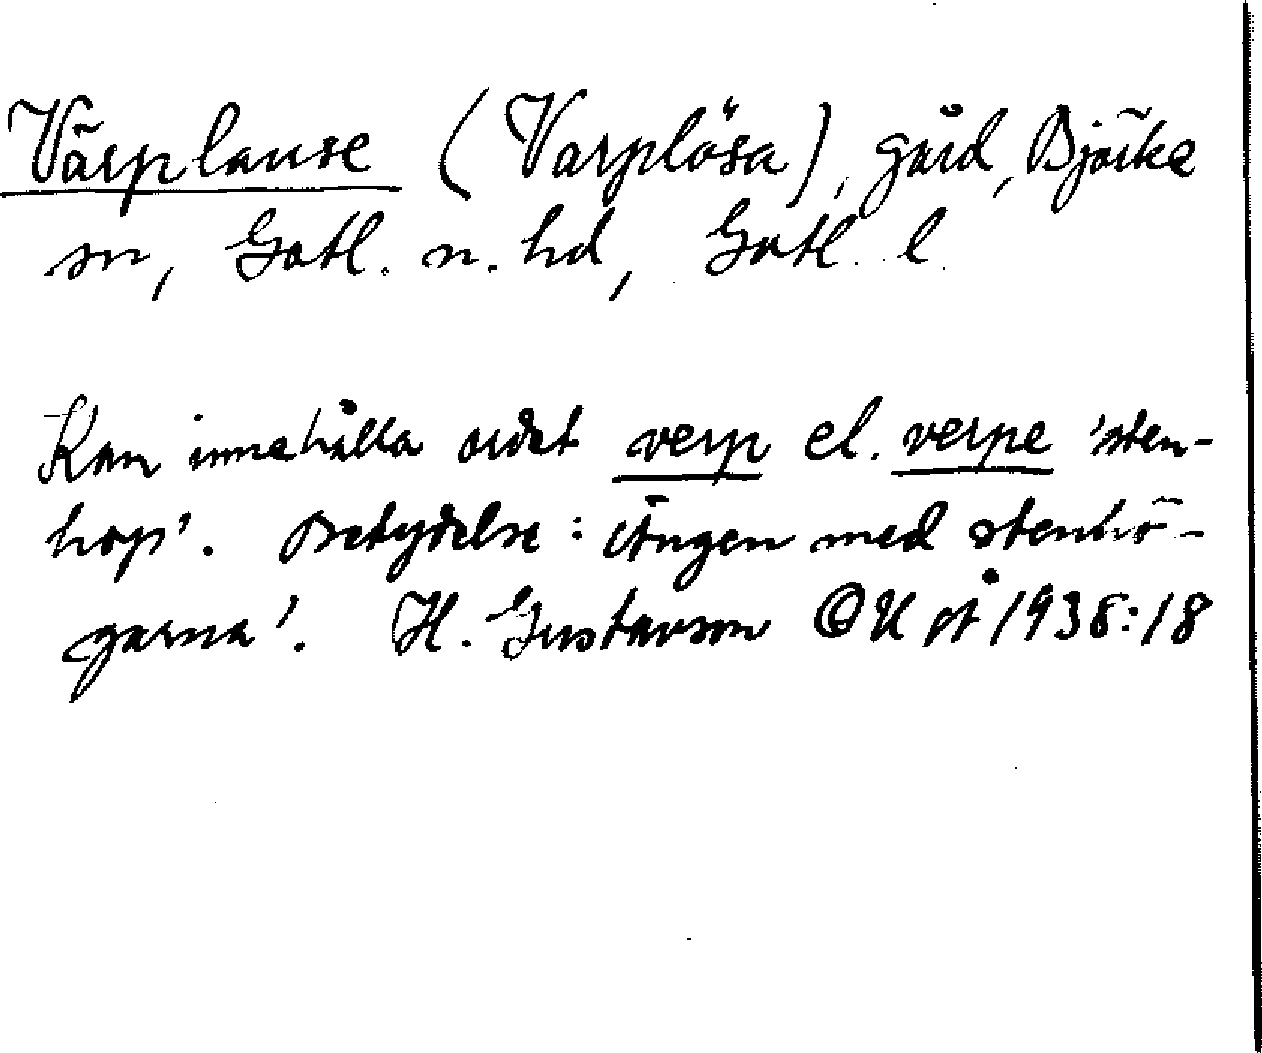 Värplause (Varplösa), gård, Björke
sn, Gotl. n. hd, Gotl. l.
Kan innehålla ordet verp el. verpe 'sten-
hop'. Betydelse: 'Ängen med stenhö-
garna'. H. Gustavson OUÅ 1938:18